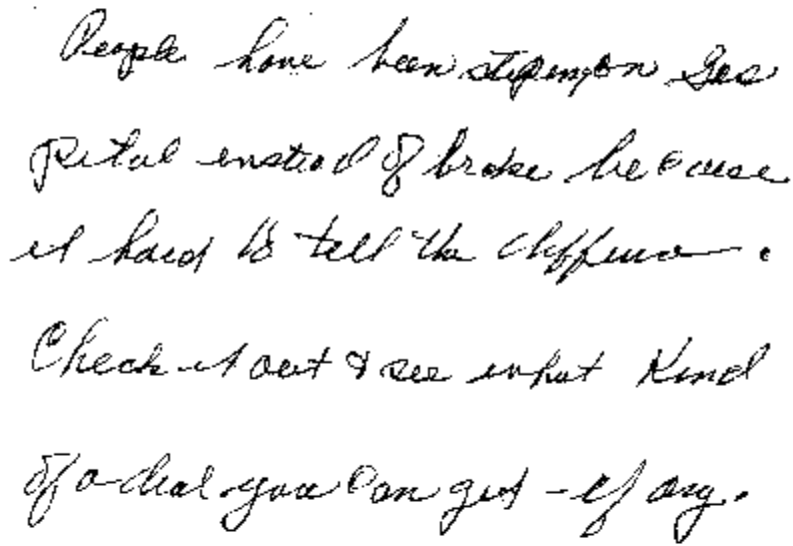 People have been steping on Gas
petal instead of brake because
it hard to tell the diffence.
Check it out & see what Kind
of a deal you can get - if any.